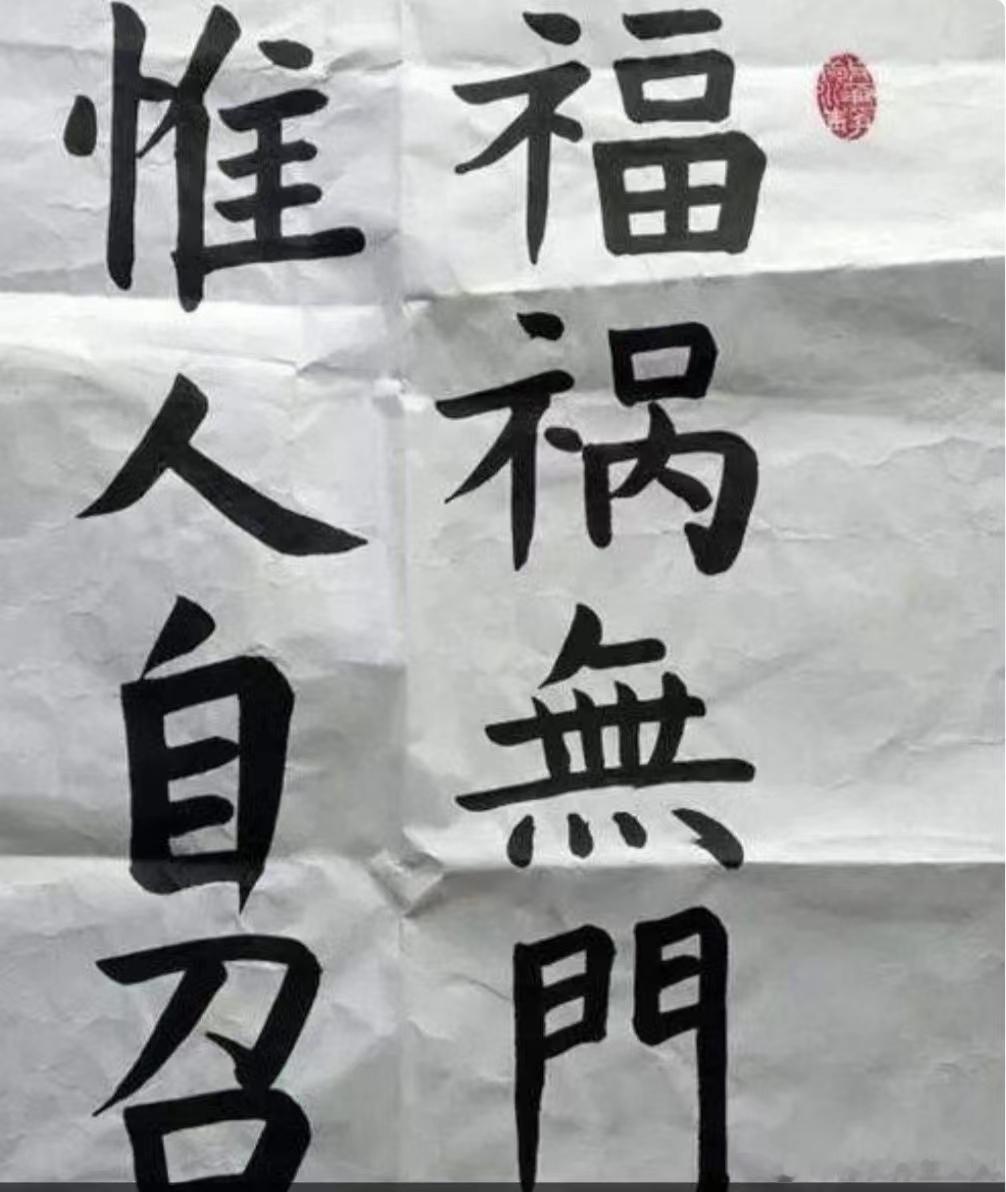 福祸無門
惟人自召